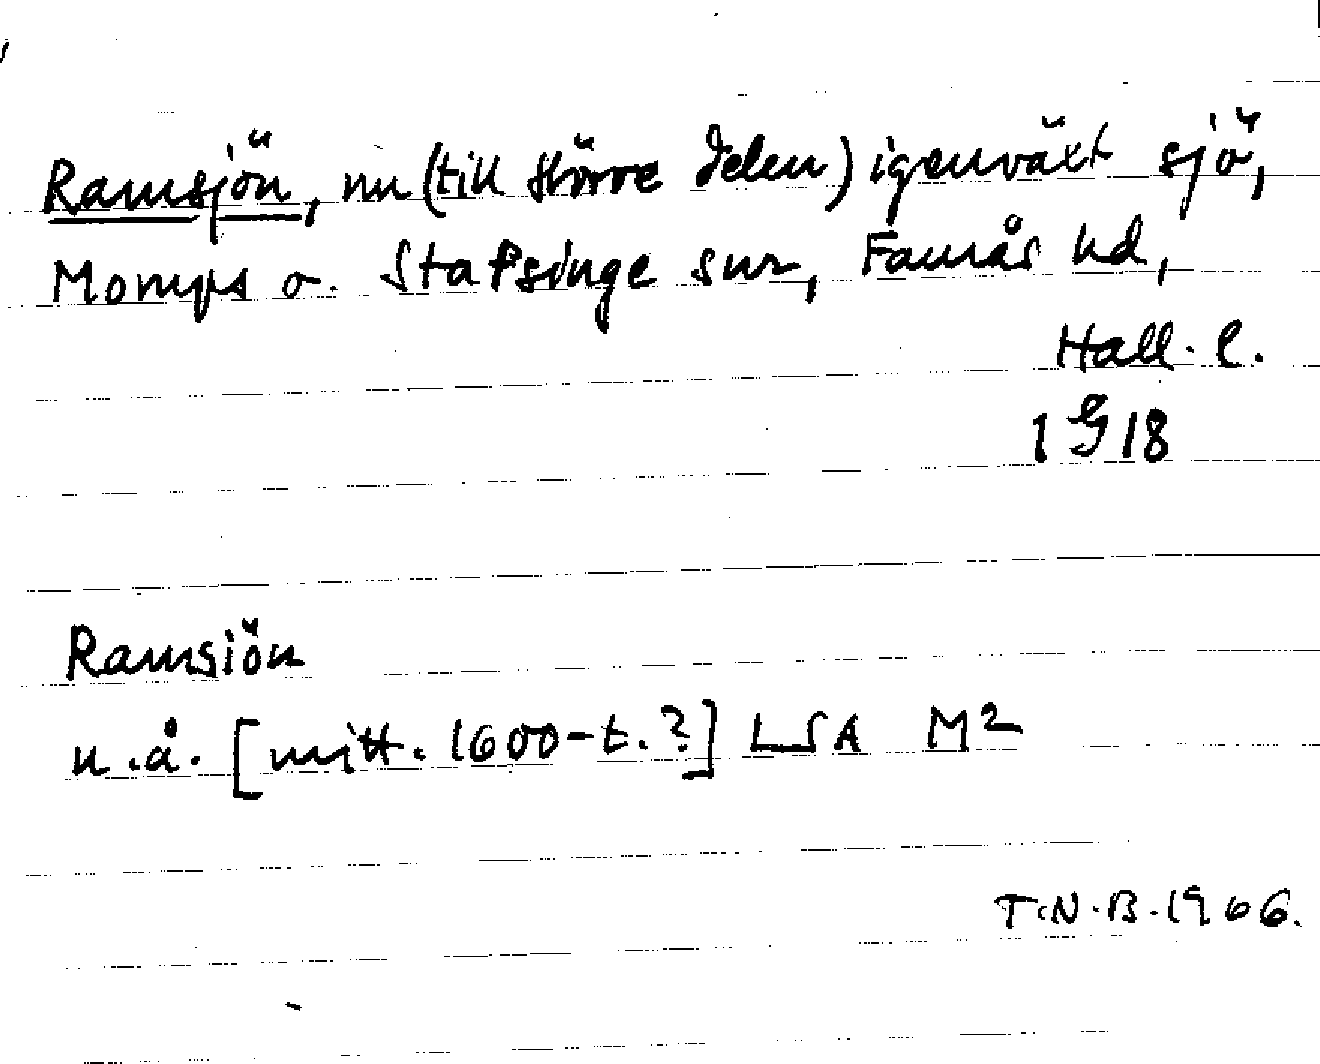 Ramsjön, nu (till större delen) igenväxt sjö,
Morups o. Stafsinge snr, Faurås hd,
Hall. l.
1 G 18
Ramsiön
u.å. [mitt. 1600-t.?] LSA M2
T.N.B. 1966.